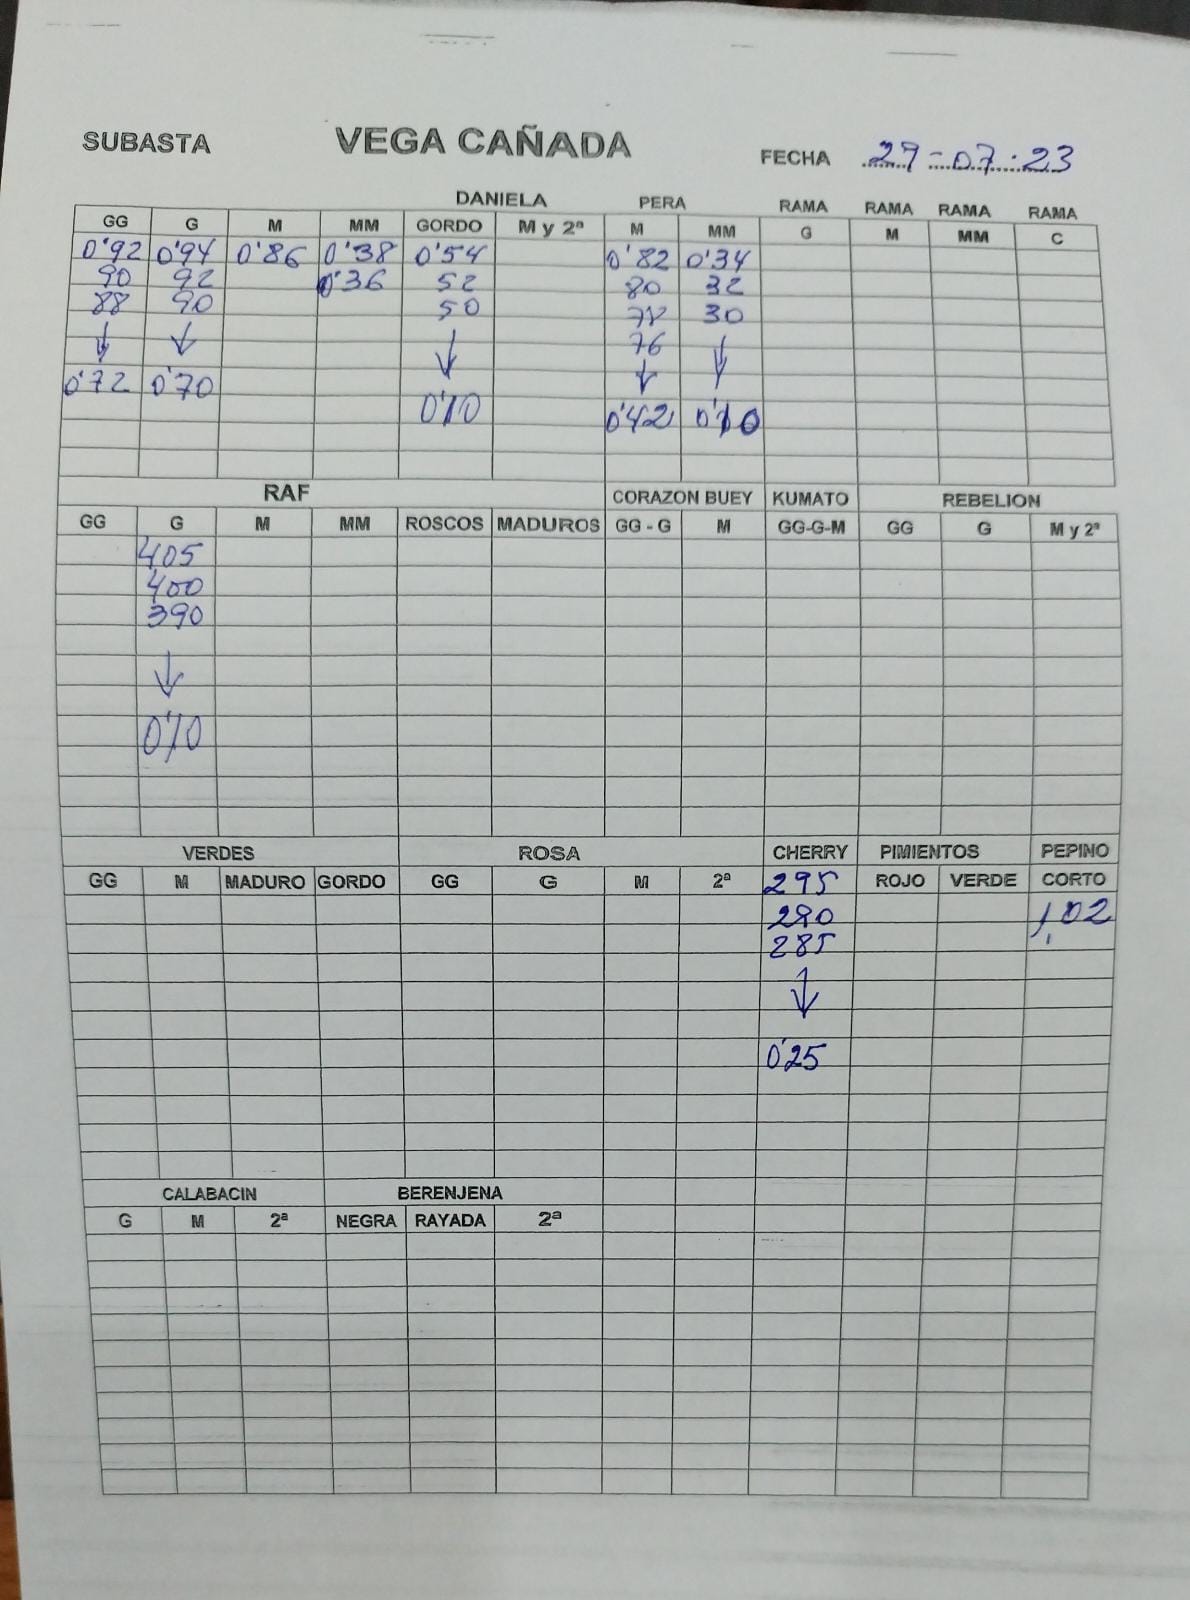 SUBASTA VEGA CAÑADA FECHA 29-07-23
DANIELA PERA RAMA RAMA RAMA RAMA
GG G M MM GORDO M y 2ª M MM G M MM C
0'92 0'94 0'86 0'38 0'54 0'82 0'34
90 92 0'36 52 80 32
88 90 50 78 30
↓ ↓ ↓ 76 ↓
0'72 0'70 ↓
0'10 0'42 0'10
RAF CORAZON BUEY KUMATO REBELION
GG G M MM ROSCOS MADUROS GG - G M GG-G-M GG G M y 2ª
405
400
390
↓
0'10
VERDES ROSA CHERRY PIMIENTOS PEPINO
GG M MADURO GORDO GG G M 2ª 295 ROJO VERDE CORTO
290 1,02
285
↓
0'25
CALABACIN BERENJENA
G M 2ª NEGRA RAYADA 2ª